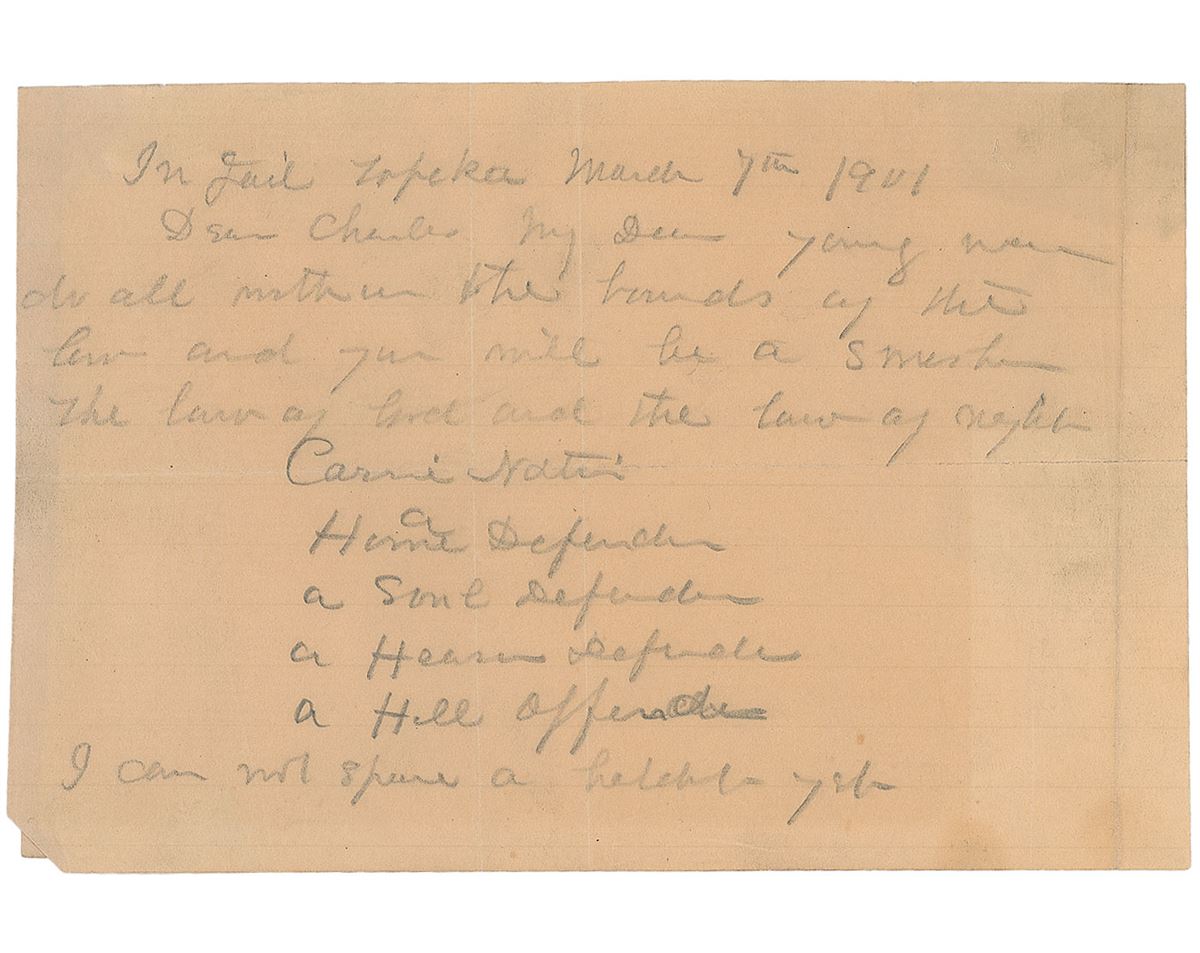 In Jail Topeka March 7th 1901
Dear Charles My Dear young man
do all within the bounds of the
law and you will be a smasher
The law of God and the law of right
Carrie Nation
a
Home Defender
a Soul Defender
a Heaven Defender
a Hell Offender
I can not spare a hatchet yet